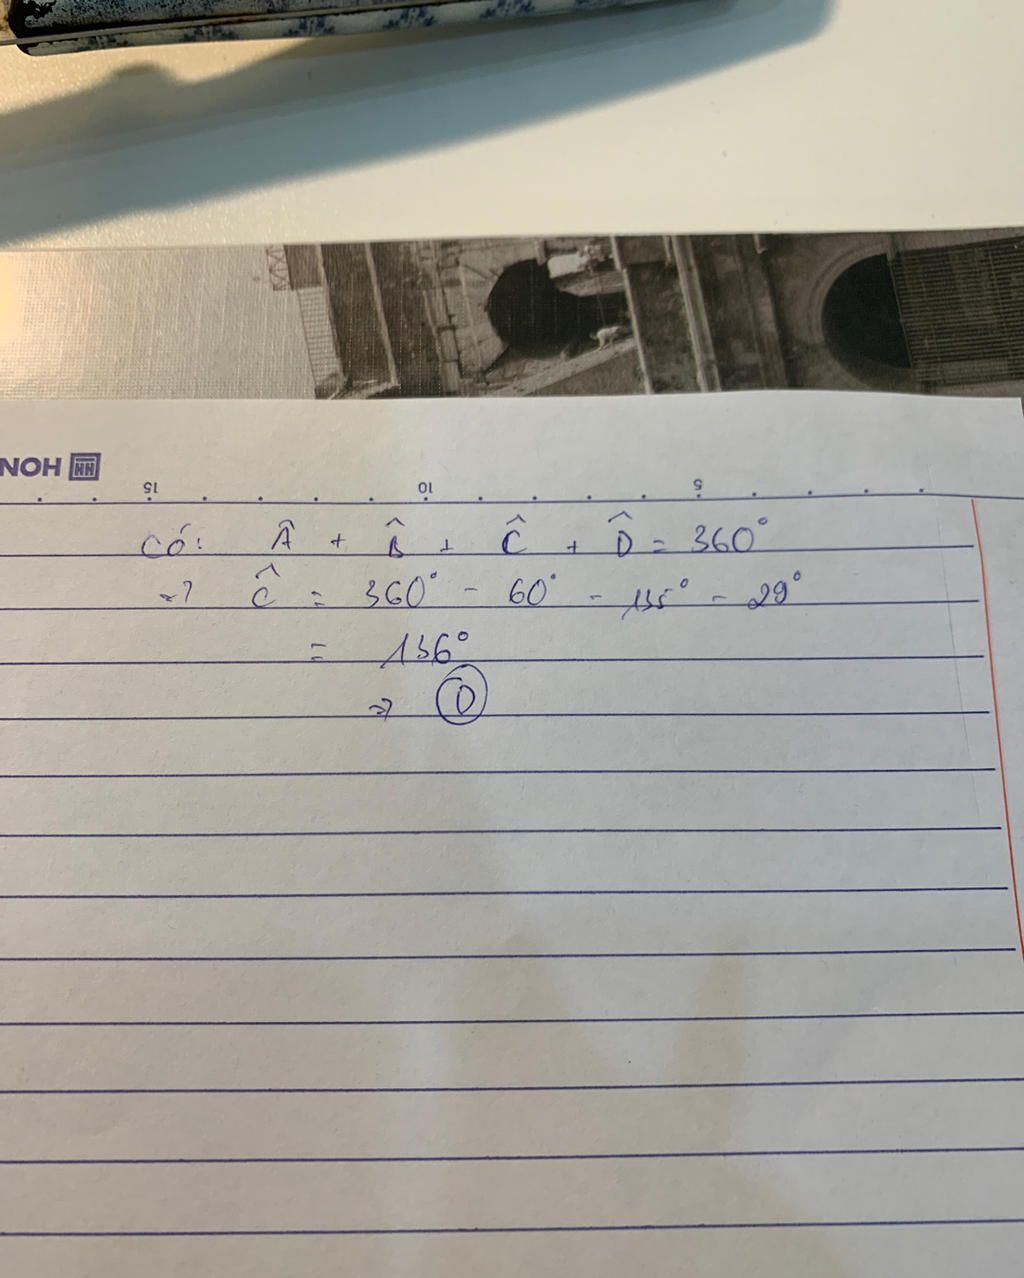 HON
15 10 5
Có: Â + B̂ + Ĉ + D̂ = 360°
=> Ĉ = 360° - 60° - 135° - 29°
= 136°
=> D